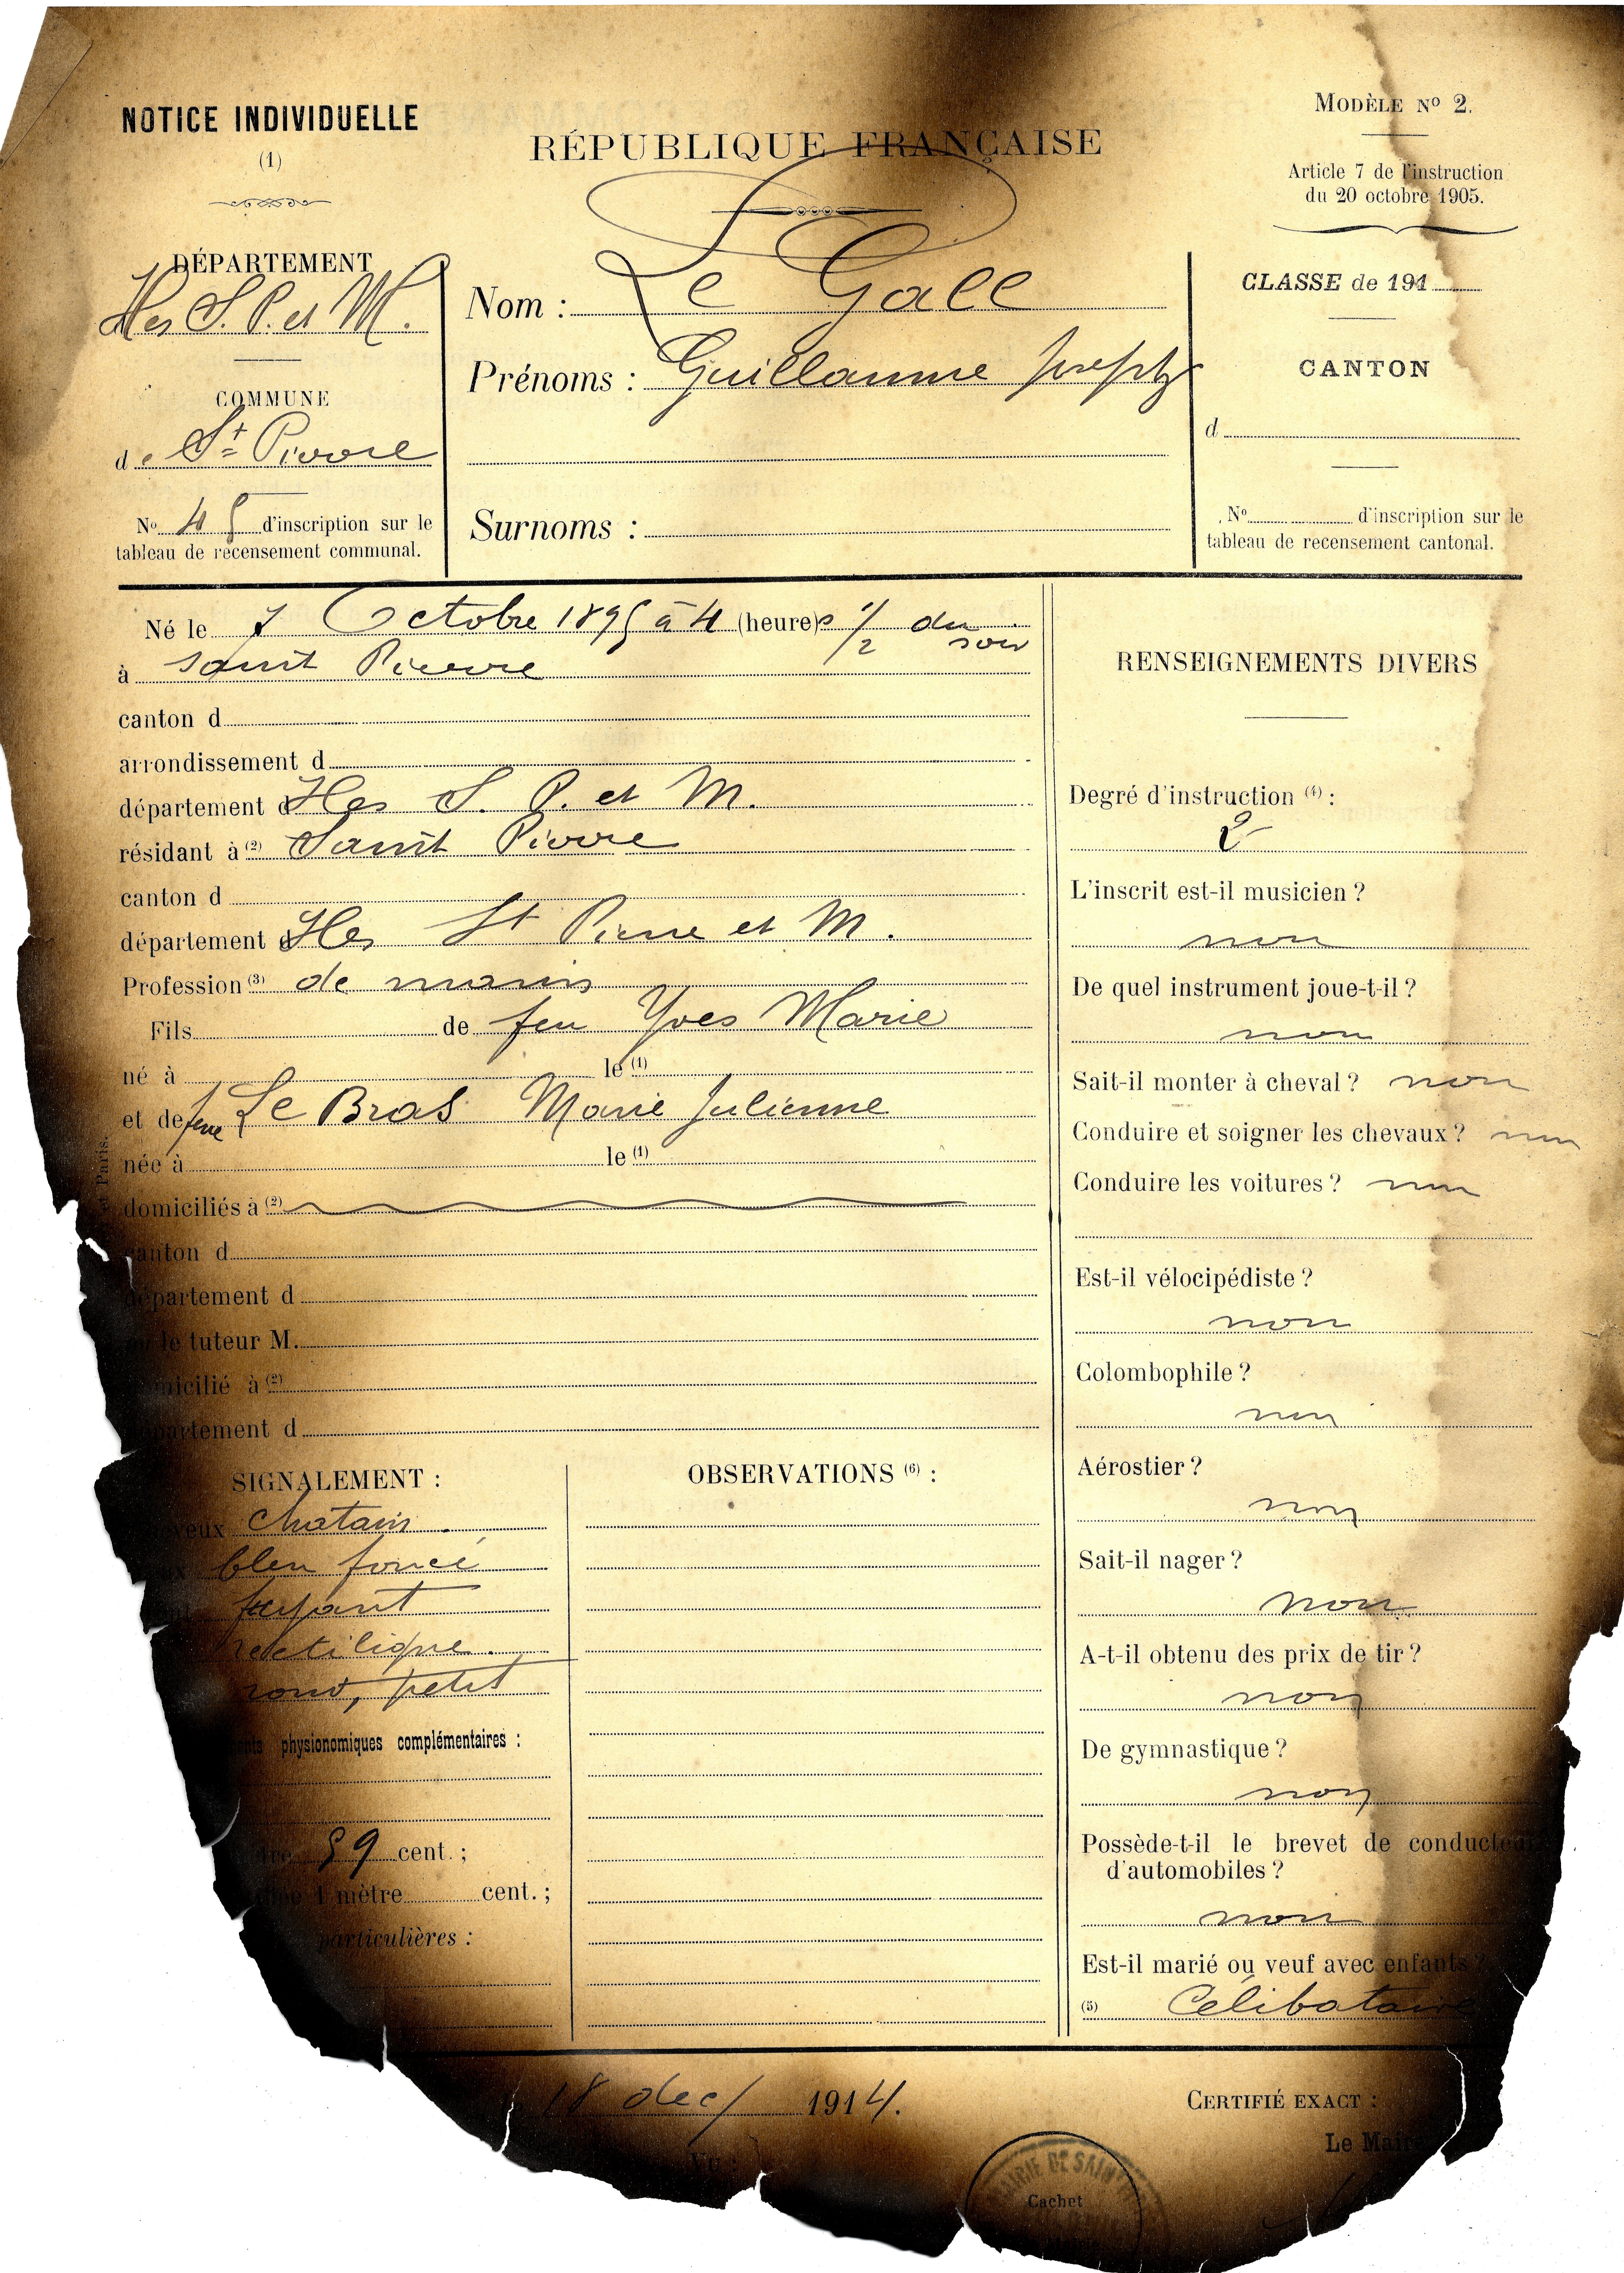 NOTICE INDIVIDUELLE
(1)
RÉPUBLIQUE FRANÇAISE
MODÈLE No 2.
Article 7 de l'instruction
du 20 octobre 1905.
DÉPARTEMENT
Iles S. P. et M.
COMMUNE
de St Pierre
No 45 d'inscription sur le
tableau de recensement communal.
Nom : Le Gall
Prénoms : Guillaume Joseph
Surnoms :
CLASSE de 191
CANTON
d
No d'inscription sur le
tableau de recensement cantonal.
Né le 7 Octobre 1895 à 4 (heures) 1/2 du soir
à Saint Pierre
canton d
arrondissement d
département d Iles S. P. et M.
résidant à (2) Saint Pierre
canton d
département d Iles St Pierre et M.
Profession (3) de marin
Fils de feu Yves Marie
né à le (1)
et de feue Le Bras Marie Julienne
née à le (1)
domiciliés à (2)
canton d
département d
le tuteur M.
domicilié à (2)
département d
SIGNALEMENT :
veux chatain
bleu foncé
fuyant
rectiligne
rond, petit
physionomiques complémentaires :
59 cent. ;
1 mètre cent. ;
particulières :
OBSERVATIONS (6) :
RENSEIGNEMENTS DIVERS
Degré d'instruction (4) :
2
L'inscrit est-il musicien ?
non
De quel instrument joue-t-il ?
non
Sait-il monter à cheval ? non
Conduire et soigner les chevaux ? non
Conduire les voitures ? non
Est-il vélocipédiste ?
non
Colombophile ?
non
Aérostier ?
non
Sait-il nager ?
non
A-t-il obtenu des prix de tir ?
non
De gymnastique ?
non
Possède-t-il le brevet de conducteur
d'automobiles ?
non
Est-il marié ou veuf avec enfants ?
(5) Célibataire
18 dec/ 1914.
Vu :
CERTIFIÉ EXACT :
Le Maire
MAIRIE DE SAINT
Cachet